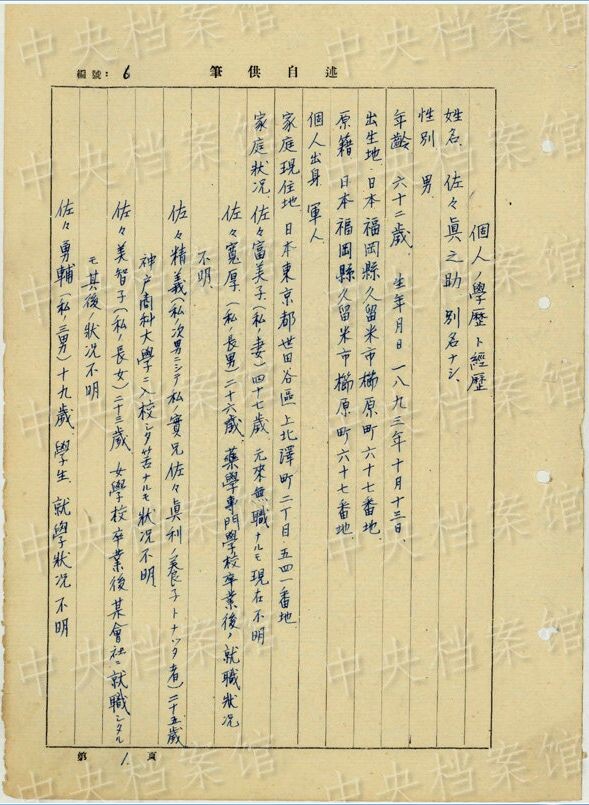 編號: 6
筆供自述
個人ノ學歷ト經歷
姓名 佐々眞之助 別名ナシ.
性別 男.
年齡 六十二歳. 生年月日 一八九三年十月十三日.
出生地 日本福岡縣久留米市櫛原町六十七番地.
原籍 日本福岡縣久留米市櫛原町六十七番地.
個人出身 軍人
家庭現住地 日本東京都世田谷區上北澤町二丁目五四一番地
家庭狀況. 佐々富美子(私ノ妻)四十七歳. 元來無職ナルモ現在不明
佐々寬厚.(私ノ長男)二十六歳. 藥學專門學校卒業後ノ就職狀况
不明.
佐々精義(私ノ次男ニシテ私ノ實兄佐々眞利ノ養子トナツタ者)二十五歳
神戸商科大學ニ入校シタ筈ナルモ狀况不明
佐々美智子(私ノ長女)二十三歳 女學校卒業後某會社ニ就職シタル
モ其後ノ狀况不明
佐々勇輔(私ノ三男)十九歳. 學生. 就學狀况不明
第 1. 頁
中央档案馆